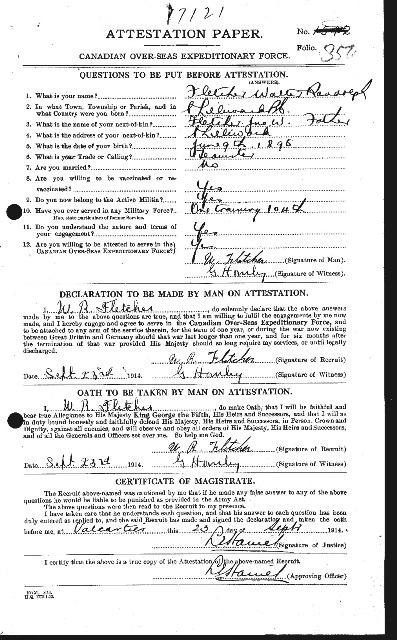 17121
ATTESTATION PAPER.
No.
Folio. 357
CANADIAN OVER-SEAS EXPEDITIONARY FORCE.
QUESTIONS TO BE PUT BEFORE ATTESTATION.
(ANSWERS).
1. What is your name? Fletcher Walter Randolph
2. In what Town, Township or Parish, and in
what Country were you born? Chilliwack B.C.
3. What is the name of your next-of-kin? Fletcher Jno W. Father
4. What is the address of your next-of-kin? Chilliwack
5. What is the date of your birth? June 9th 1895
6. What is your Trade or Calling?
7. Are you married? No
8. Are you willing to be vaccinated or re-
vaccinated? Yes
9. Do you now belong to the Active Militia? Yes
10. Have you ever served in any Military Force? One training 104th
If so, state particulars of former Service.
11. Do you understand the nature and terms of
your engagement? Yes
12. Are you willing to be attested to serve in the
CANADIAN OVER-SEAS EXPEDITIONARY FORCE? Yes
W. Fletcher (Signature of Man).
(Signature of Witness).
DECLARATION TO BE MADE BY MAN ON ATTESTATION.
I, W. R. Fletcher, do solemnly declare that the above answers
made by me to the above questions are true, and that I am willing to fulfil the engagements by me now
made, and I hereby engage and agree to serve in the Canadian Over-Seas Expeditionary Force, and
to be attached to any arm of the service therein, for the term of one year, or during the war now existing
between Great Britain and Germany should that war last longer than one year, and for six months after
the termination of that war provided His Majesty should so long require my services, or until legally
discharged.
W. R. Fletcher (Signature of Recruit)
Date Sept 23rd 1914. (Signature of Witness)
OATH TO BE TAKEN BY MAN ON ATTESTATION.
I, W. R. Fletcher, do make Oath, that I will be faithful and
bear true Allegiance to His Majesty King George the Fifth, His Heirs and Successors, and that I will as
in duty bound honestly and faithfully defend His Majesty, His Heirs and Successors, in Person, Crown and
Dignity, against all enemies, and will observe and obey all orders of His Majesty, His Heirs and Successors,
and of all the Generals and Officers set over me. So help me God.
W. R. Fletcher (Signature of Recruit)
Date Sept 23rd 1914. (Signature of Witness)
CERTIFICATE OF MAGISTRATE.
The Recruit above-named was cautioned by me that if he made any false answer to any of the above
questions he would be liable to be punished as provided in the Army Act.
The above questions were then read to the Recruit in my presence.
I have taken care that he understands each question, and that his answer to each question has been
duly entered as replied to, and the said Recruit has made and signed the declaration and taken the oath
before me, at Valcartier this 23 day of Sept 1914.
(Signature of Justice)
I certify that the above is a true copy of the Attestation of the above-named Recruit.
(Approving Officer)